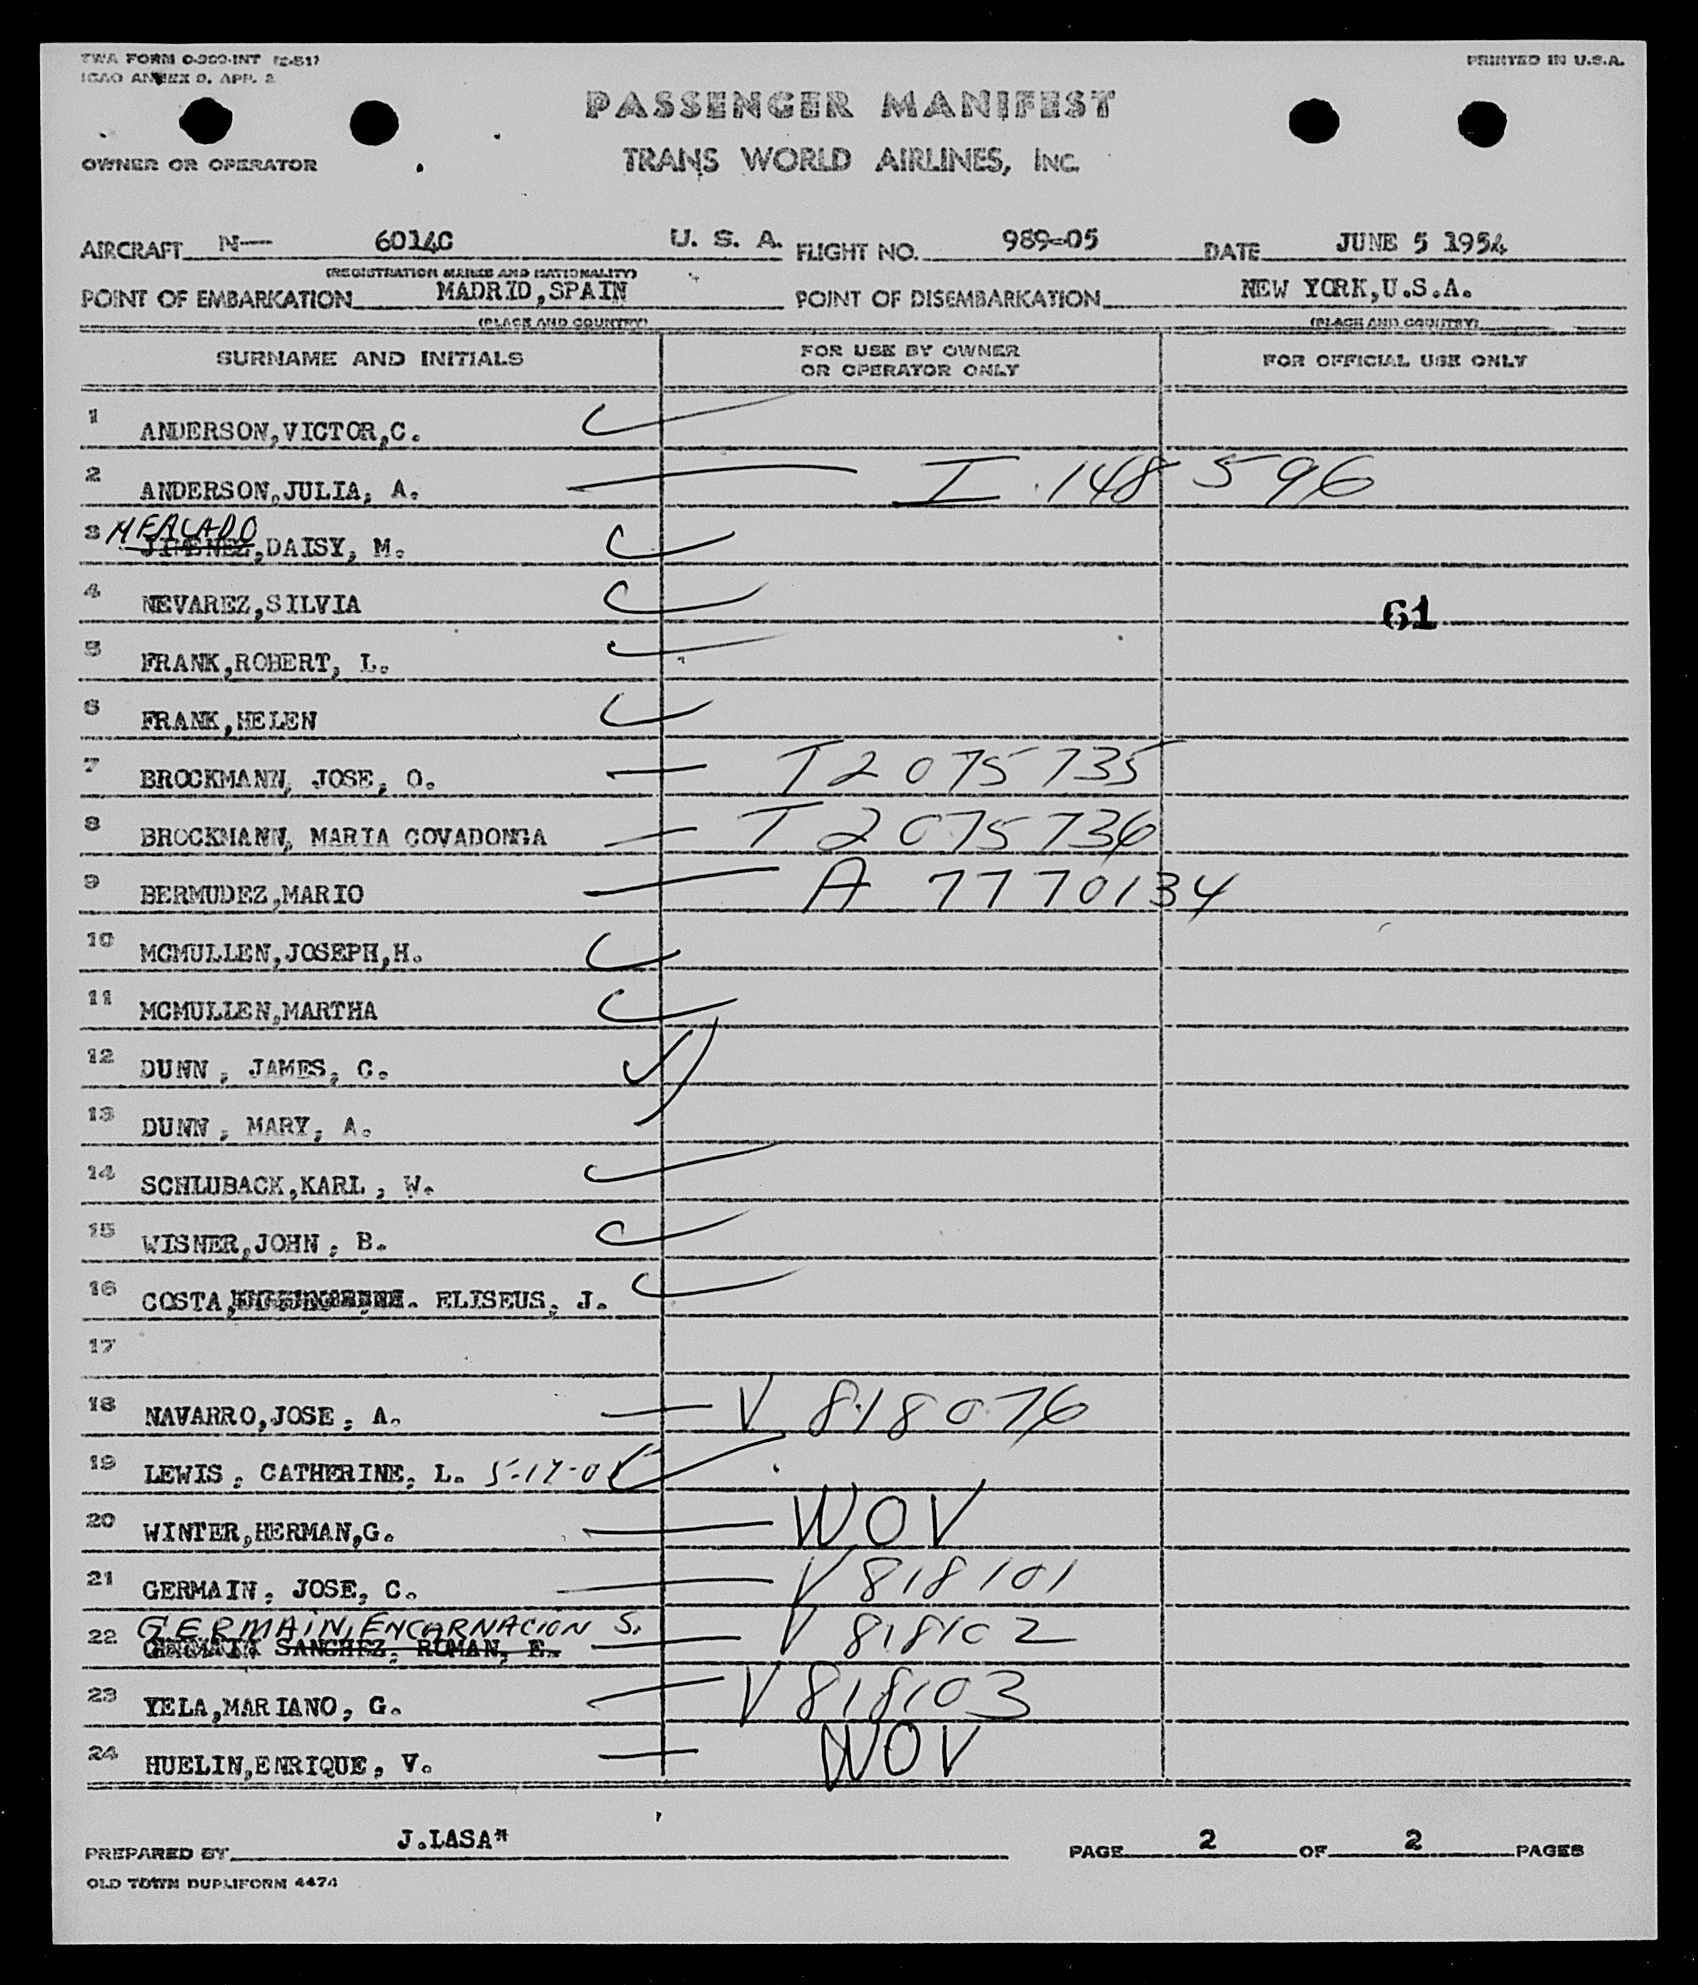 TWA FORM O-260-INT (2-51)
ICAO ANNEX 9, APP. 2
PRINTED IN U.S.A.
PASSENGER MANIFEST
OWNER OR OPERATOR
TRANS WORLD AIRLINES, INC.
AIRCRAFT N— 6014C U. S. A. FLIGHT NO. 989-05 DATE JUNE 5 1954
(REGISTRATION MARKS AND NATIONALITY)
POINT OF EMBARKATION MADRID,SPAIN POINT OF DISEMBARKATION NEW YORK,U.S.A.
(PLACE AND COUNTRY) (PLACE AND COUNTRY)
SURNAME AND INITIALS FOR USE BY OWNER OR OPERATOR ONLY FOR OFFICIAL USE ONLY
1 ANDERSON,VICTOR,C.
2 ANDERSON,JULIA, A. I 148 596
3 MERCADO JIMENEZ,DAISY, M.
4 NEVAREZ,SILVIA 61
5 FRANK,ROBERT, L.
6 FRANK,HELEN
7 BROCKMANN, JOSE, O. T2075735
8 BROCKMANN, MARIA COVADONGA T2075736
9 BERMUDEZ,MARIO A 7770134
10 MCMULLEN,JOSEPH,H.
11 MCMULLEN,MARTHA
12 DUNN, JAMES, C.
13 DUNN, MARY, A.
14 SCHLUBACK,KARL, W.
15 WISNER,JOHN, B.
16 COSTA, ELISEUS, J.
17
18 NAVARRO,JOSE, A. V 818076
19 LEWIS, CATHERINE, L.
20 WINTER,HERMAN,G. WOV
21 GERMAIN, JOSE, C. V 818101
GERMAIN, ENCARNACION S.
22 GERMAIN SANCHEZ, ROMAN, E. V 818102
23 YELA,MARIANO, G. V 818103
24 HUELIN,ENRIQUE, V. WOV
PREPARED BY J.LASA* PAGE 2 OF 2 PAGES
OLD TOWN DUPLIFORM 4474